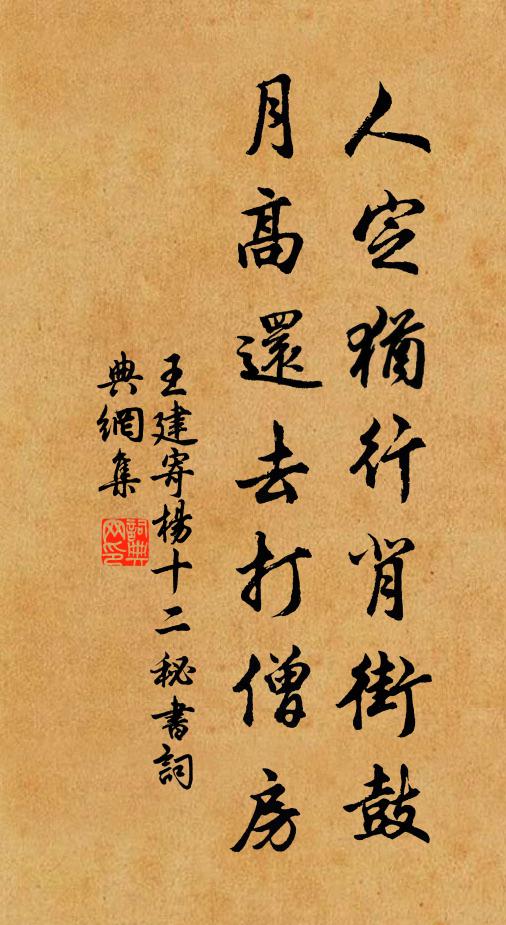 人定猶行背街鼓
月高還去打僧房
王建寄楊十二秘書詞
典網集
詞典
网印